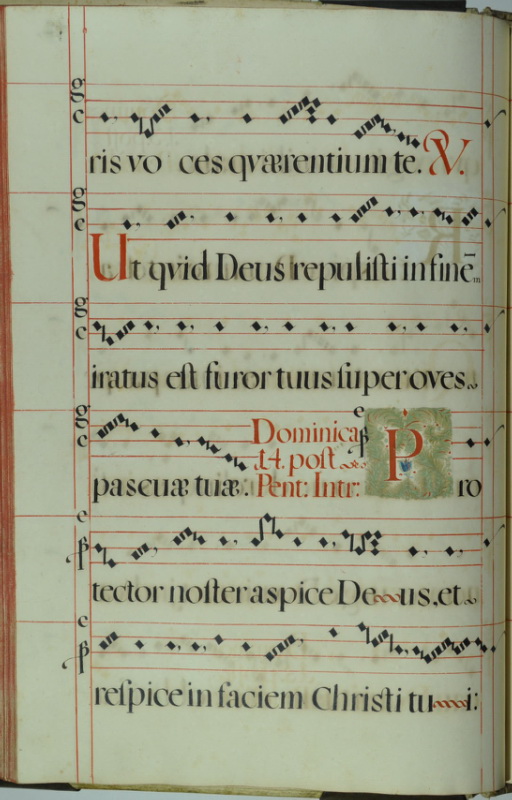 g
c
ris vo ces qværentium te. V.
g
c
Ut qvid Deus repulisti in finē
g
c
iratus est furor tuus super oves
g
c
Dominica
14. post
pascuæ tuæ. Pent: Intr: Pro
e
tector noster aspice De us, et
e
respice in faciem Christi tu i: